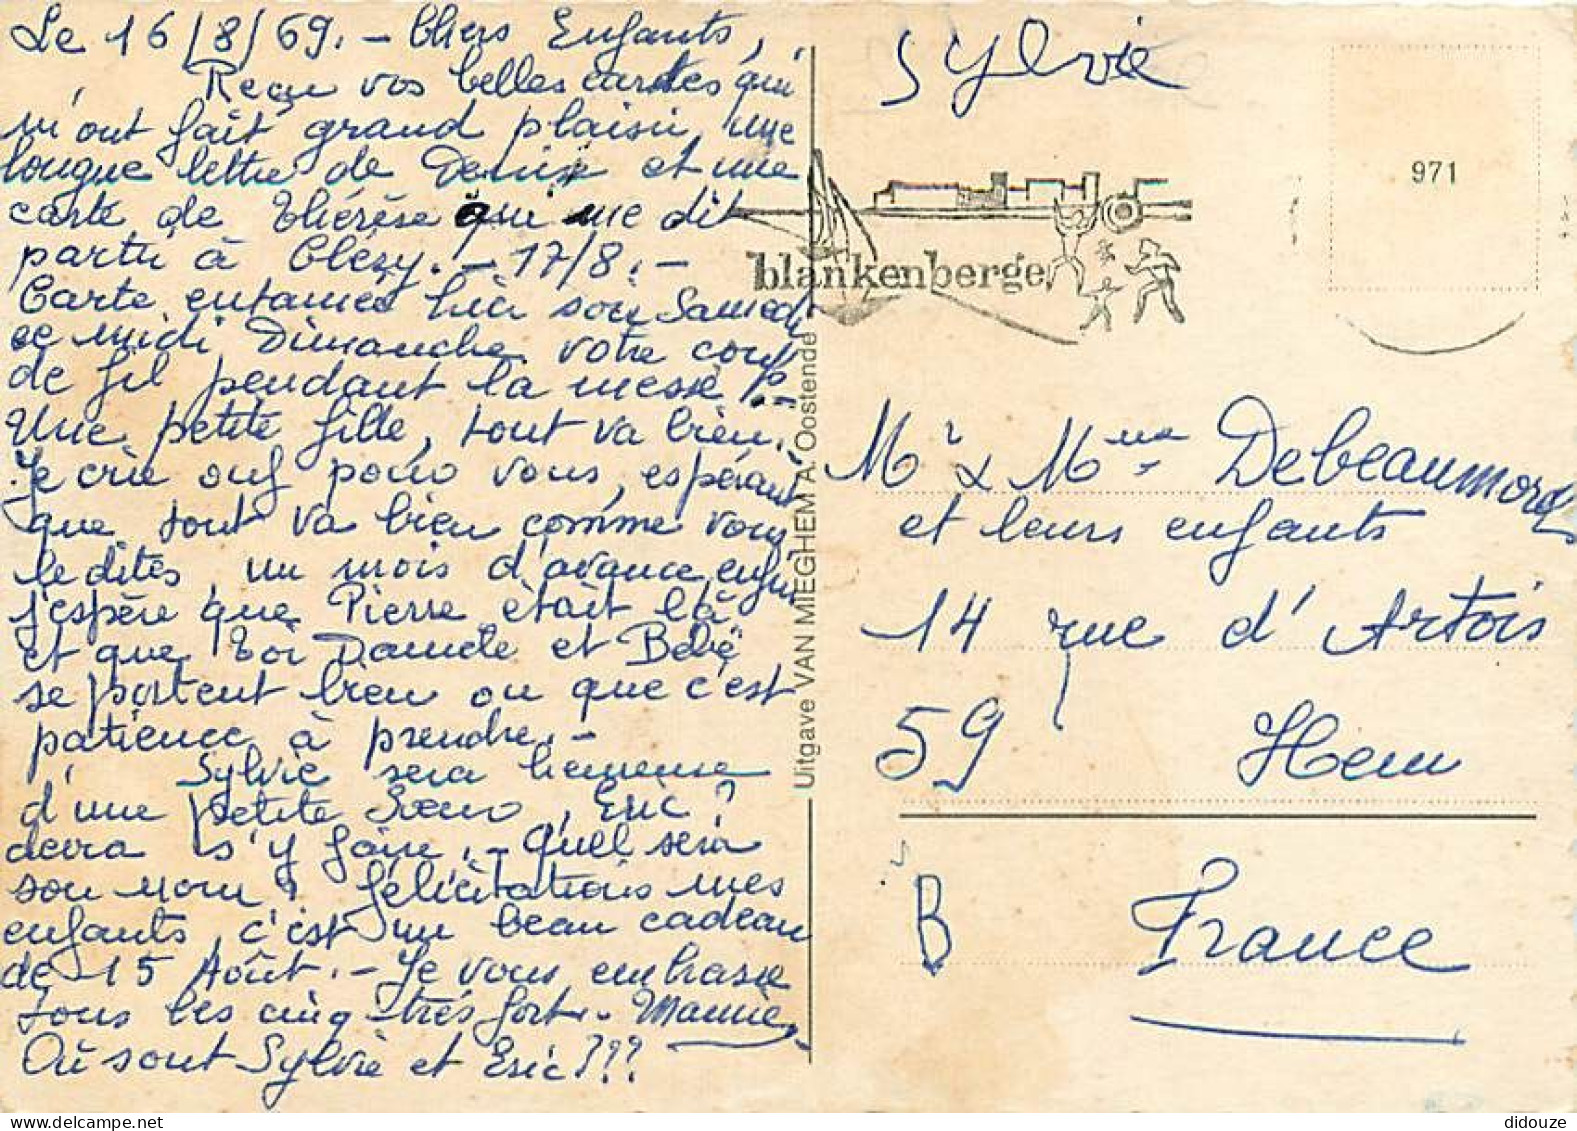 Le 16/8/69. - Chers Enfants,
Reçu vos belles cartes qui
m'ont fait grand plaisir, une
longue lettre de Denise et une
carte de Thérèse qui me dit
partir à Clézy. - 17/8. -
Carte entamée hier soir Samedi
ce midi Dimanche votre coup
de fil pendant la messe !! -
Une petite fille, tout va bien.
Je crie ouf pour vous, espérant
que tout va bien comme vous
le dites, un mois d'avance enfin
j'espère que Pierre était là
et que toi Danièle et Bébé
se portent bien ou que c'est
patience à prendre. -
Sylvie sera heureuse
d'une petite Sœur, Eric ?
devra s'y faire. - Quel sera
son nom ? Félicitations mes
enfants, c'est un beau cadeau
de 15 Août. - Je vous embrasse
tous les cinq très fort. - Mamie
Où sont Sylvie et Eric ???
Uitgave VAN MIEGHEM A. Oostende
Sylvie
971
blankenberge
Mr & Mme Debeaumord
et leurs enfants
14 rue d'Artois
59 Hem
B France
delcampe.net
didouze